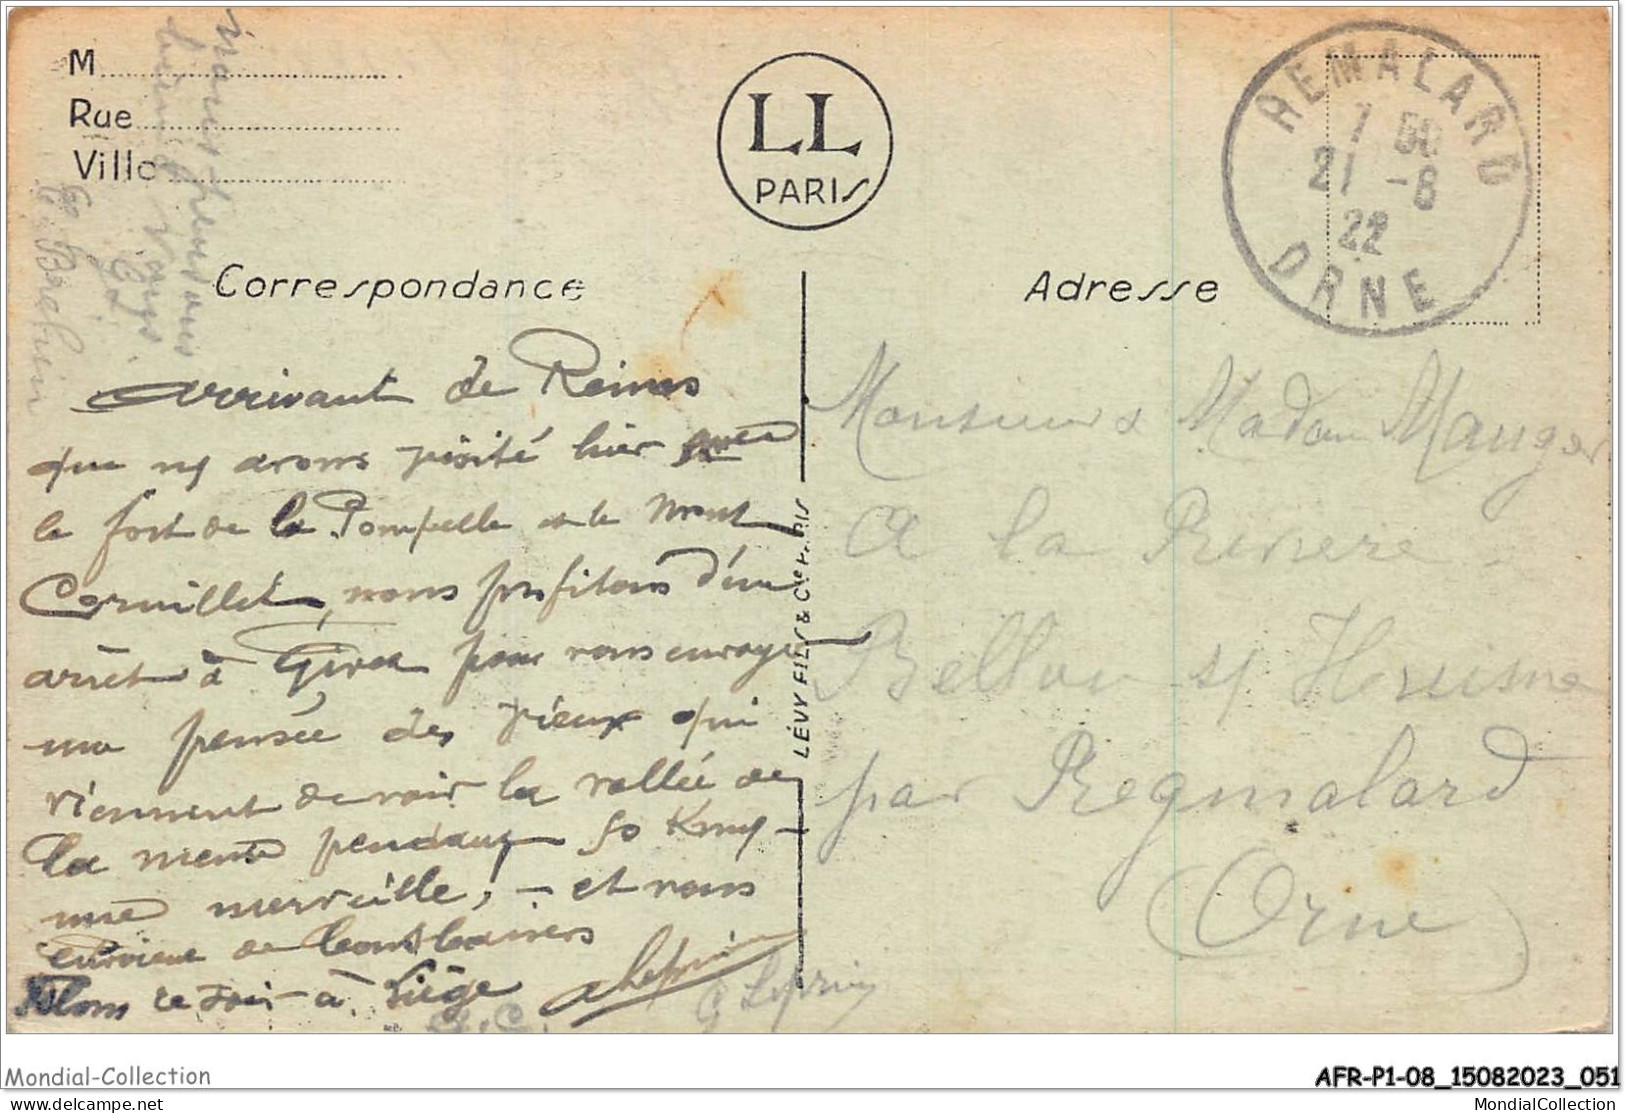 M
Rue
Ville
LL
PARIS
REMALARD
7
21 -8
22
ORNE
Correspondance
Adresse
arrivant de Reims
que ns avons visité hier
le fort de la Pompelle et le Mont
Cornillet, nous profitons d'un
arrêt à Givet pour vous envoyer
une pensée des vieux qui
viennent de voir la vallée de
la meuse pendant 50 Kmy -
une merveille! - et vous
envoient de bons baisers
Allons ce soir à Liège
LÉVY FILS & Cie PARIS
Monsieur & Madame Mauger
a la Riviere
Bellou s/ Huisne
par Regmalard
(Orne)
Mondial-Collection
AFR-P1-08_15082023_051
delcampe.net
MondialCollection